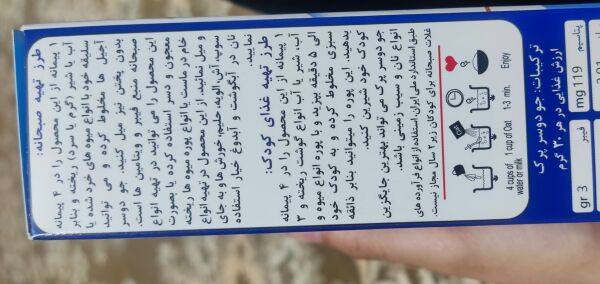 طرز تهیه صبحانه:
۱ پیمانه از این محصول را در ۴ پیمانه
آب یا شیر (گرم یا سرد) ریخته و بنابر
سلیقه خود با انواع میوه های خرد شده یا
آجیل ها مخلوط کرده و می توانید
بدون پختن نیز میل کنید. جو دوسر
صبحانه شیم فیبر و ویتامین ها است.
این محصول را می توانید در تهیه انواع
معجون و دسر استفاده کرده یا بصورت
خام در ماست یا انواع پوره میوه ها ریخته
و میل نمایید. از این محصول در تهیه انواع
سوپ، آش، الویه، حلیم، خورش ها و به جای
نان در آبگوشت و آبدوغ خیار استفاده
نمایید.
طرز تهیه غذای کودک:
۱ پیمانه از این محصول را در ۴ پیمانه
آب، شیر یا آب انواع گوشت ریخته و ۳
الی ۵ دقیقه بپزید و با پوره انواع میوه و
سبزی مخلوط کرده و به کودک خود
بدهید. این پوره را میتوانید بنابر ذائقه
کودک خود شیرین کنید.
جو دوسر پرک می تواند بهترین جایگزین
انواع نان و سیب زمینی باشد.
طبق استاندارد ملی ایران، استفاده از انواع فرآورده های
غلات صبحانه برای کودکان زیر ۲ سال مجاز نیست.
4 cups of
water or milk
1 cup of Oat
1-3 min.
Enjoy
ترکیبات: جو دوسر پرک
ارزش غذایی در هر ۳۰ گرم
فیبر
gr 3
پتاسیم
mg 119